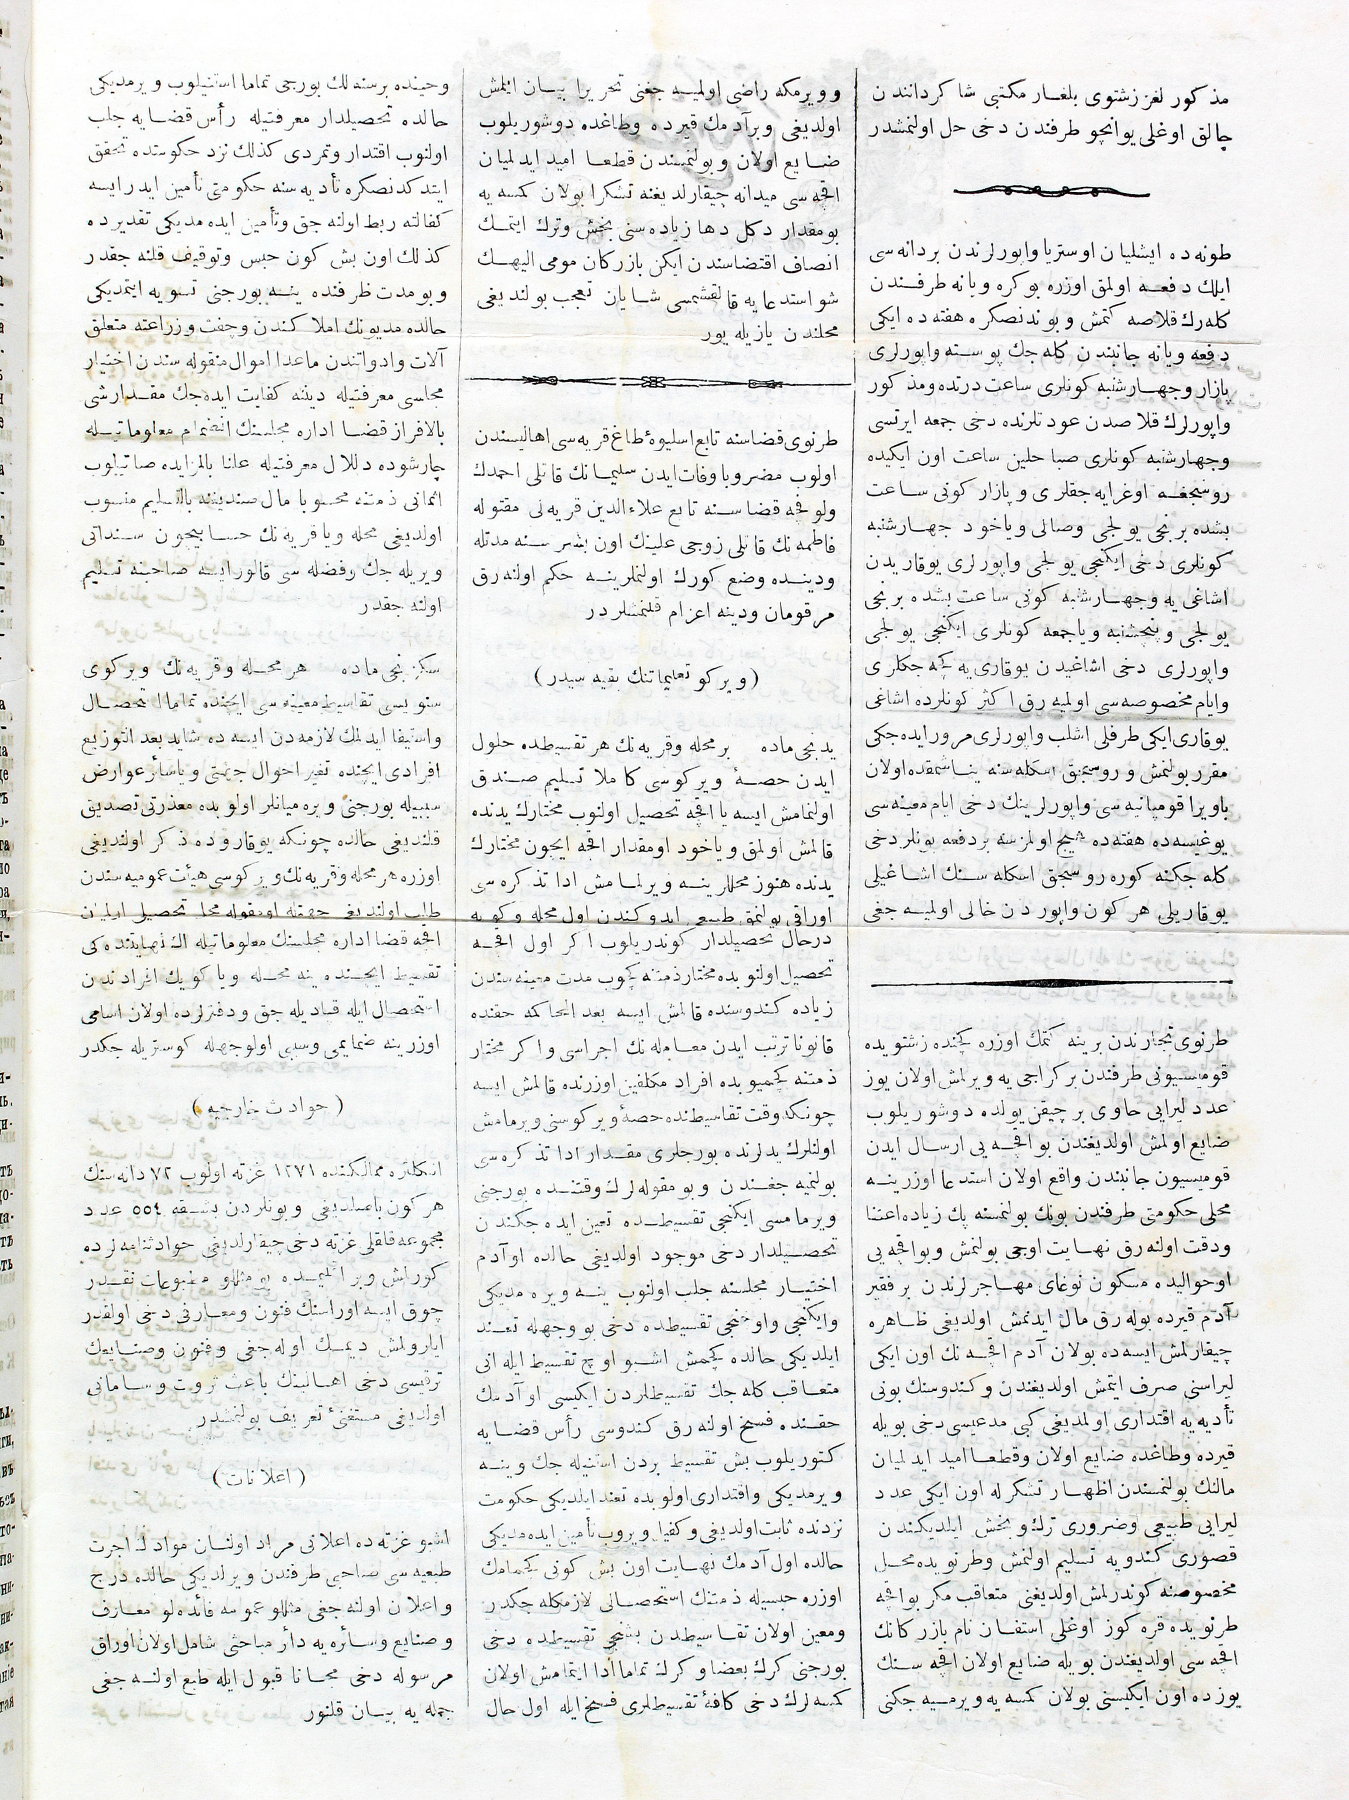 مذكور لغز زشتوی بلغار مكتبی شاكردانندن
چالق اوغلی یوانچو طرفندن دخی حل اولنمشدر
طونه ده ایشلیان اوستریا واپورلرندن بردانه سی
ایلك دفعه اولمق اوزره بوكره ویانه طرفندن
كله رك قلاصه كتمش و بوندنصكره هفته ده ایكی
دفعه ویانه جانبندن كله جك پوسته واپورلری
پازار وچهارشنبه كونلری ساعت درتده ومذكور
واپورلرك قلاصدن عودتلرنده دخی جمعه ایرتسی
وچهارشنبه كونلری صباحلین ساعت اون ایكیده
روسجغه اوغرایه جقلری و پازار كونی ساعت
بشده برنجی یولجی وصالی ویاخود چهارشنبه
كونلری دخی ایكنجی یولجی واپورلری یوقاریدن
اشاغی یه وچهارشنبه كونی ساعت بشده برنجی
یولجی و پنچشنبه ویاجمعه كونلری ایكنجی یولجی
واپورلری دخی اشاغیدن یوقاری یه كچه جكلری
وایام مخصوصه سی اولمیه رق اكثر كونلرده اشاغی
یوقاری ایكی طرفلی اشلب واپورلری مرور ایده جكی
مقرر بولنمش و روسجق اسكله سنه یناشمقده اولان
باویرا قومپانیه سی واپورلرینك دخی ایام معینه سی
یوغیسه ده هفته ده هیچ اولمزسه بردفعه بونلر دخی
كله جكنه كوره روسجق اسكله سنك اشاغیلی
یوقاریلی هر كون واپوردن خالی اولمیه جغی
طرنوی تجارندن برینه كتمك اوزره كچنده زشتویده
قومیسیونی طرفندن بر كراجی یه ویرلمش اولان یوز
عدد لیرایی حاوی بر چیقن یولده دوشوریلوب
ضایع اولمش اولدیغندن بو اقچه یی ارسال ایدن
قومیسیون جانبندن واقع اولان استدعا اوزرینه
محلی حكومتی طرفندن بونك بولنمسنه پك زیاده اعتنا
ودقت اولنه رق نهایت اوجی بولنمش وبو اقچه یی
اوحوالیده مسكون نوغای مهاجرلرندن بر فقیر
آدم قیرده بوله رق مال ایدنمش اولدیغی ظاهره
چیقارلمش ایسه ده بولان آدم اقچه نك اون ایكی
لیراسنی صرف ایتمش اولدیغندن و كندوسنك بونی
تأدیه یه اقتداری اولمدیغی كبی مدعیسی دخی بویله
قیرده وطاغده ضایع اولان وقطعا امید ایدلمیان
مالنك بولنمسندن اظهار تشكرله اون ایكی عدد
لیرایی طبیعی وضروری ترك و بخش ایلدیكندن
قصوری كندویه تسلیم اولنمش وطرنویده محل
مخصوصنه كوندرلمش اولدیغنی متعاقب مكر بو اقچه
طرنویده قره كوز اوغلی استفان نام بازركانك
اقچه سی اولدیغندن بویله ضایع اولان اقچه سنك
یوزده اون ایكیسنی بولان كمسه یه ویرمیه جكنی
و ویرمكه راضی اولمیه جغنی تحریرا بیان ایتمش
اولدیغی وبر آدمك قیرده وطاغده دوشوریلوب
ضایع اولان و بولنمسندن قطعا امید ایدلمیان
اقچه سی میدانه چیقارلدیغنه تشكرا بولان كمسه یه
بومقدار دكل دها زیاده سنی بخش وترك ایتمك
انصاف اقتضاسندن ایكن بازركان مومی الیهك
شو استدعایه قالقشمسی شایان تعجب بولندیغی
محلندن یازیله یور
طرنوی قضاسنه تابع اسلیوۀ طاغ قریه سی اهالیسندن
اولوب مضروبا وفات ایدن سلیمانك قاتلی احمدك
ولوفچه قضاسنه تابع علاءالدین قریه لی مقتوله
فاطمه نك قاتلی زوجی علینك اون بشر سنه مدتله
ودینده وضع كورك اولنملرینه حكم اولنه رق
مرقومان ودینه اعزام قلنمشلردر
(ویركو تعلیماتنك بقیه سیدر)
یدنجی ماده بر محله وقریه نك هر تقسیطده حلول
ایدن حصۀ ویركوسی كاملا تسلیم صندق
اولنمامش ایسه یا اقچه تحصیل اولنوب مختارك یدنده
قالمش اولمق و یاخود اومقدار اقچه ایچون مختارك
یدنده هنوز محللرینه ویرلمامش ادا تذكره سی
اوراقی بولنمق طبیعی ایدوكندن اول محله وكویه
درحال تحصیلدار كوندریلوب اكر اول اقچه
تحصیل اولنوبده مختار ذمتنه كچوب مدت معینه سندن
زیاده كندوسنده قالمش ایسه بعد المحاكمه حقنده
قانونا ترتب ایدن معامله نك اجراسی واكر مختار
ذمتنه كچمیوبده افراد مكلفین اوزرنده قالمش ایسه
چونكه وقت تقاسیطنده حصۀ ویركوسنی ویرمامش
اولنلرك یدلرنده بورجلری مقدار ادا تذكره سی
بولنمیه جغندن و بومقوله لرك وقتنده بورجنی
ویرمامسی ایكنجی تقسیطده تعین ایده جكندن
تحصیلدار دخی موجود اولدیغی حالده اوآدم
اختیار مجلسنه جلب اولنوب ینه ویره مدیكی
وایكنجی واوچنجی تقسیطده دخی بووجهله تعند
ایلدیكی حالده كچمش اشبو اوچ تقسیط ایله انی
متعاقب كله جك تقسیطلردن ایكیسی اوآدمك
حقنده فسخ اولنه رق كندوسی رأس قضایه
كتوریلوب بش تقسیط بردن استنیله جك وینه
ویرمدیكی واقتداری اولوبده تعند ایلدیكی حكومت
نزدنده ثابت اولدیغی وكفیل ویروب تأمین ایده مدیكی
حالده اول آدمك نهایت اون بش كونی كچمامك
اوزره حبسیله ذمتنك استحصالی لازمكله جكدر
ومعین اولان تقاسیطدن بشنجی تقسیطده دخی
بورجنی كرك بعضا وكرك تماما ادا ایتمامش اولان
كمسه لرك دخی كافۀ تقسیطلری فسخ ایله اول حال
وحینده برسنه لك بورجی تماما استنیلوب ویرمدیكی
حالده تحصیلدار معرفتیله رأس قضایه جلب
اولنوب اقتدار وتمردی كذلك نزد حكومتده تحقق
ایتدكدنصكره تأدیه سنه حكومتی تأمین ایدر ایسه
كفالته ربط اولنه جق وتأمین ایده مدیكی تقدیرده
كذلك اون بش كون حبس وتوقیف قلنه جقدر
و بومدت ظرفنده ینه بورجنی تسویه ایتمدیكی
حالده مدیونك املاكندن وچفت وزراعته متعلق
آلات وادواتندن ماعدا اموال منقوله سندن اختیار
مجلسی معرفتیله دیننه كفایت ایده جك مقدارشی
بالافراز قضا اداره مجلسنك انضمام معلوماتیله
چارشوده دلال معرفتیله علنا بالمزایده صاتیلوب
اثمانی ذمتنه محسوبا مال صندیغنه بالتسلیم منسوب
اولدیغی محله ویاقریه نك حسابیچون سنداتی
ویریله جك رفضله سی قالور ایسه صاحبنه تسلیم
اولنه جقدر
سكزنجی ماده هر محله وقریه نك ویركوی
سنویسی تقاسیط معینه سی ایچنده تماما استحصال
واستیفا ایدلمك لازمه دن ایسه ده شاید بعد التوزیع
افرادی ایچنده تغیر احوال جهتی ویاسائر عوارض
سببیله بورجنی ویره میانلر اولوبده معذرتی تصدیق
قلندیغی حالده چونكه یوقاروده ذكر اولندیغی
اوزره هر محله وقریه نك ویركوسی هیئت عمومیه سندن
طلب اولندیغی جهتله اومقوله محل تحصیل اولمیان
اقچه قضا اداره مجلسنك معلوماتیله الك نهایتنده كی
تقسیط ایچنده ینه محله ویا كویك افرادندن
استحصال ایله قپادیله جق ودفترلرده اولان اسامی
اوزرینه ضمایمی وسببی اولوجهله كوستریله جكدر
(حوادث خارجیه)
انكلتره ممالكنده ١٢٧١ غزته اولوب ٧٢ دانه سنك
هركون باصلدیغی و بونلردن بشقه ٥٥٤ عدد
مجموعه قلقلی غزته دخی چیقارلدیغی حوادثنامه لرده
كورلمش وبر اقلیمده بومثللو مطبوعات نقدر
چوق ایسه اوراسنك فنون ومعارفی دخی اولقدر
ایلرولمش دیمك اوله جغی وفنون وصنایعك
ترقیسی دخی اهالینك باعث ثروت وسامانی
اولدیغی مستغنئ تعریف بولنمشدر
(اعلانات)
اشبو غزته ده اعلانی مراد اولنان موادك اجرت
طبعیه سی صاحبی طرفندن ویرلدیكی حالده درج
واعلان اولنه جغی مثللو عمومه فائده لو معارف
وصنایع وسائره یه دائر مباحثی شامل اولان اوراق
مرسوله دخی مجانا قبول ایله طبع اولنه جغی
جمله یه بیان قلنور